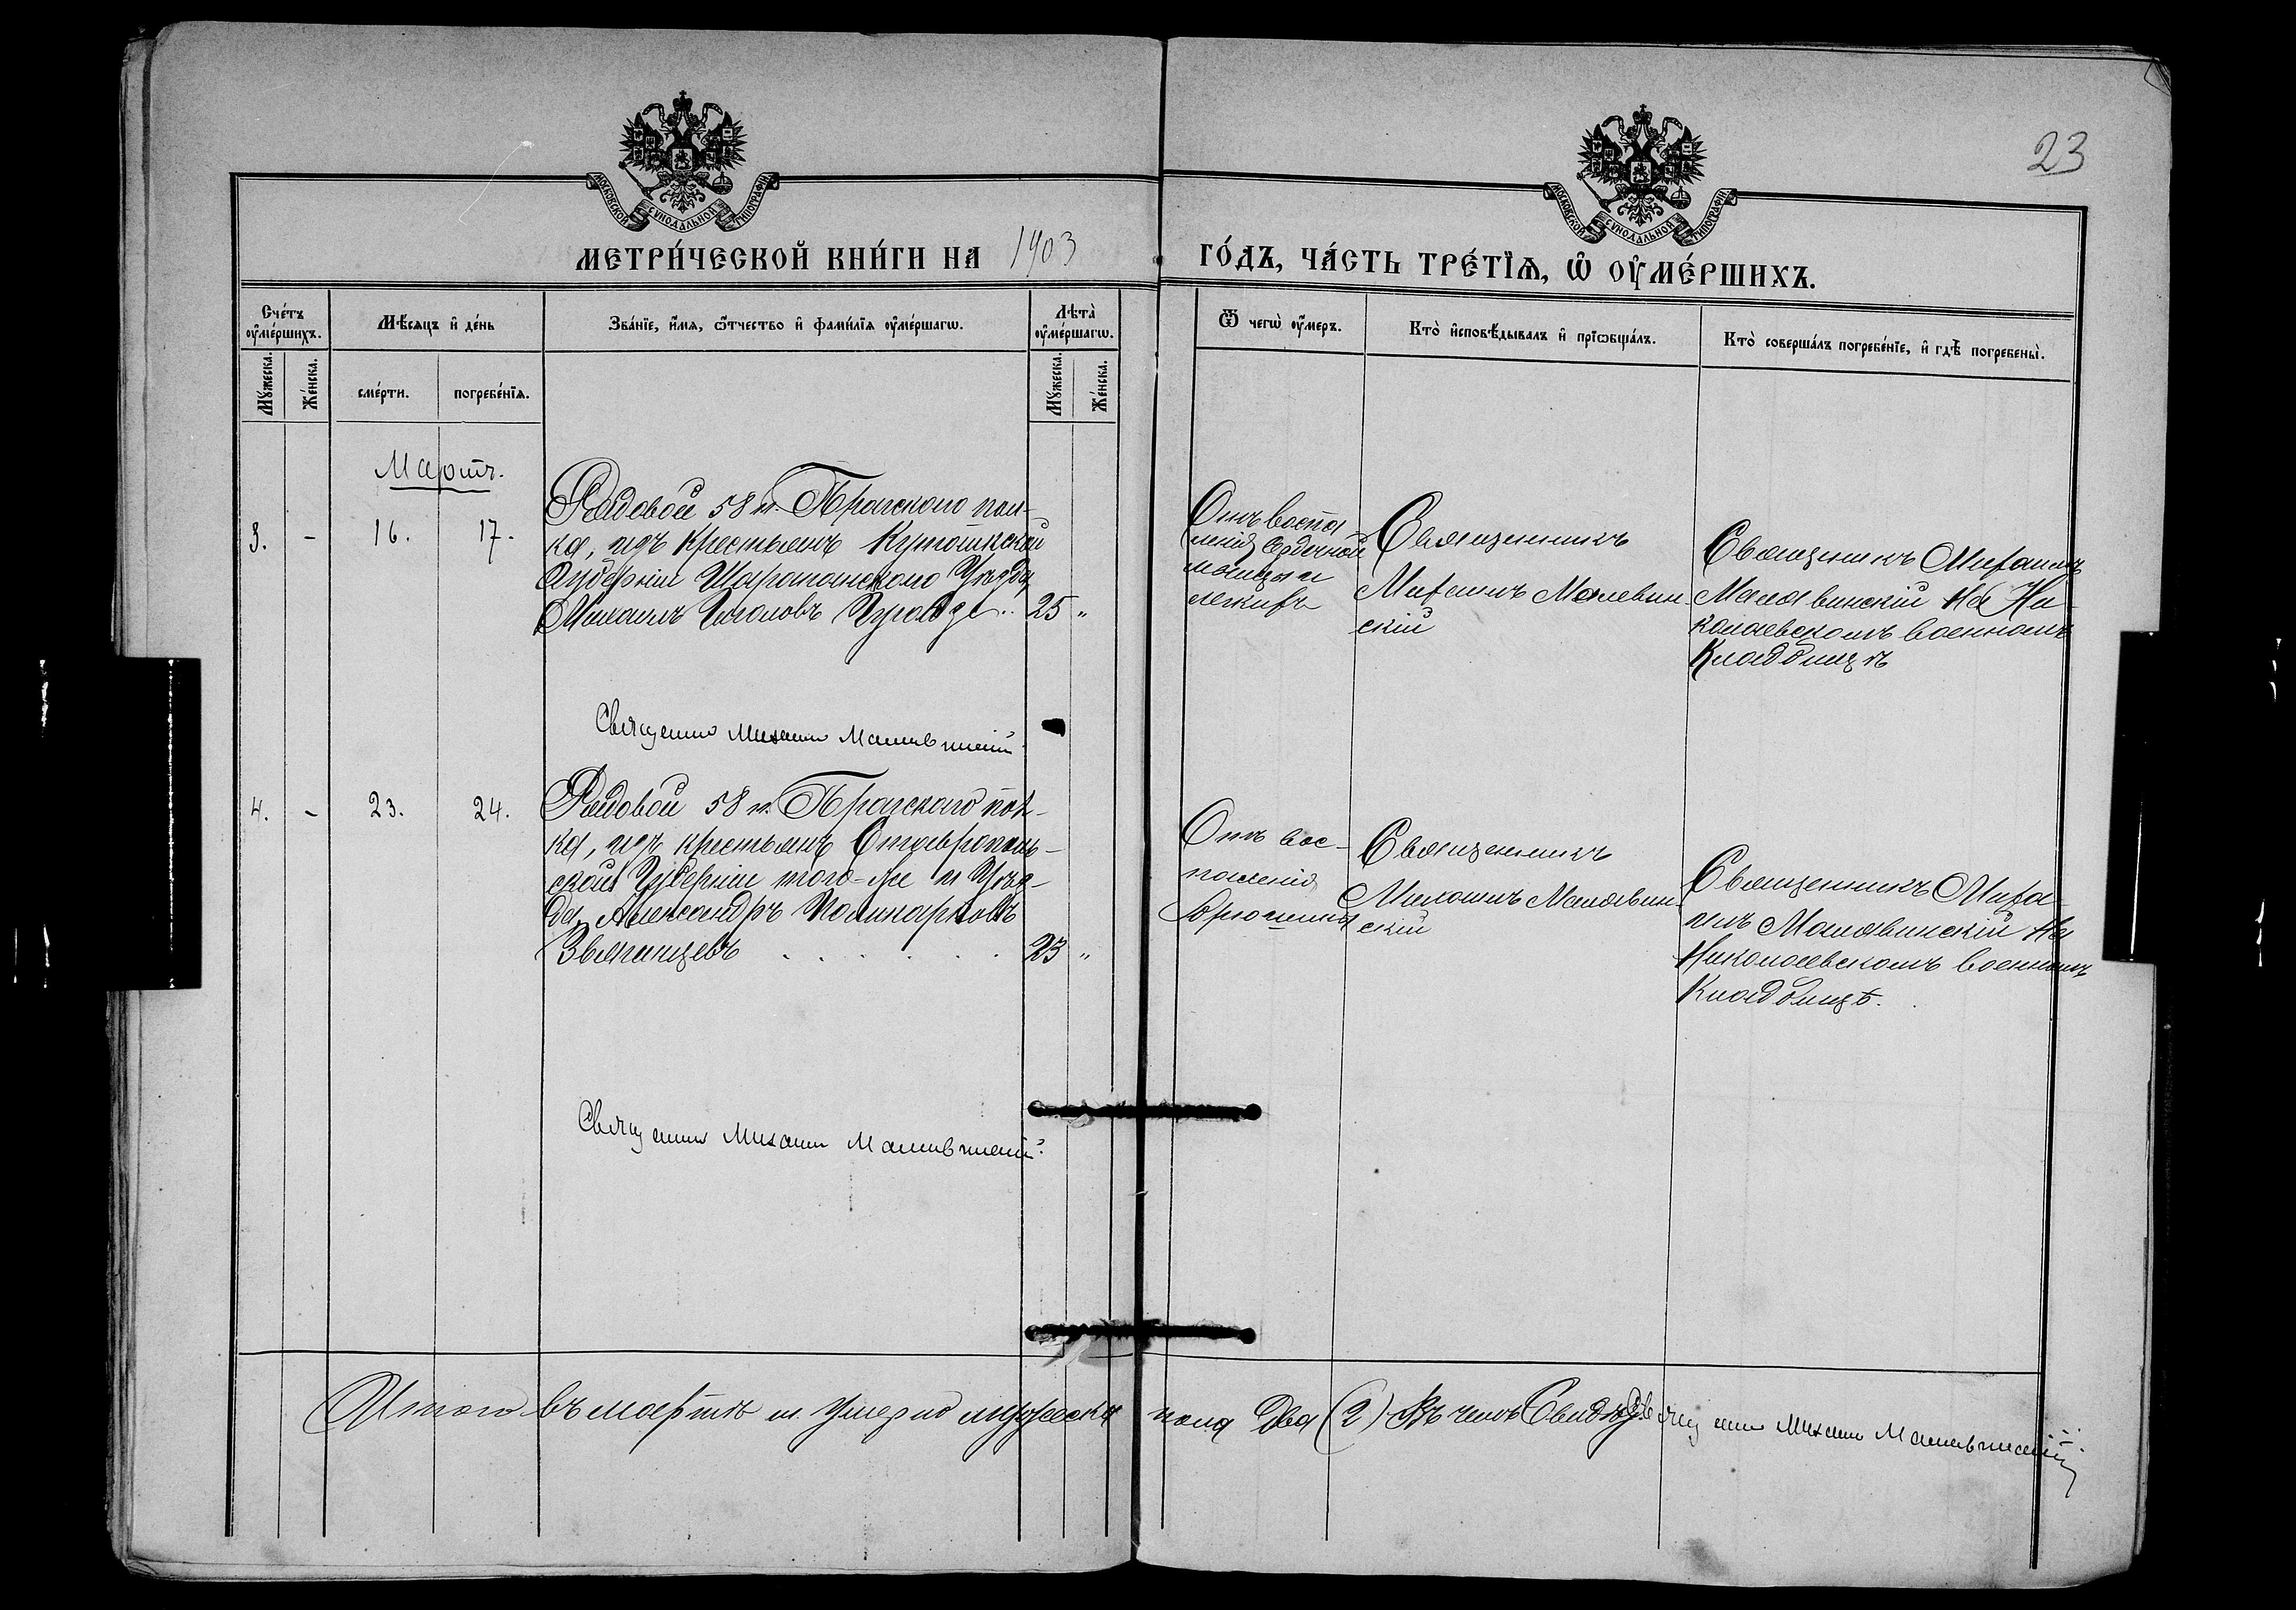 23
МОСКОВСКОЙ СѴНОДАЛЬНОЙ ТИПОГРАФІИ.
МОСКОВСКОЙ СѴНОДАЛЬНОЙ ТИПОГРАФІИ.
МЕТРИ́ЧЕСКОЙ КНИ́ГИ НА 1903
ГО́ДЪ, ЧА́СТЬ ТРЕ́ТІѦ, Ѡ҆ ОУ҆МЕ́РШИХЪ.
Сче́тъ
оу҆ме́ршихъ.
Мꙋ́жеска.
Же́нска.
Мѣ́сѧцъ и҆ де́нь
сме́рти.
погребе́нїѧ.
Зва́нїе, и҆́мѧ, ѻ҆́тчество и҆ фамилїѧ оу҆ме́ршагѡ.
Лѣта̀
оу҆ме́ршагѡ.
Мꙋ́жеска.
Же́нска.
Ѿ чегѡ̀ оу҆́меръ.
Кто̀ и҆сповѣ́дывалъ и҆ прїѡбща́лъ.
Кто̀ соверша́лъ погребе́нїе, и҆ гдѣ̀ погребены̀.
Мартъ.
3. - 16. 17.
Рядовой 58 п. Прагскаго пол-
ка, изъ крестьянъ Кутаисской
Губерніи Шаропанскаго Уѣзда
Михаилъ 25 "
Отъ воспа
ленія Сердечной
мышцы и
легкихъ
Священникъ
Михаилъ Малевин-
скій
Священникъ Михаилъ
Малавинскій На Ни-
колаевскомъ военномъ
Кладбищѣ
Священникъ Михаилъ Малявинскій
4. - 23. 24.
Рядовой 58 п. Прагскаго пол-
ка, изъ крестьянъ Ставрополь-
ской Губерніи того-же и Уѣз-
да, Александръ Поликарповъ
Звягинцевъ . . . . . . 23 "
Отъ вос-
паленія
брюшины
Священникъ
Михаилъ Малавин-
скій
Священникъ Миха-
илъ Малавинскій На
Николаевскомъ военномъ
Кладбищѣ.
Священникъ Михаилъ Малявинскій.
Итого въ мартѣ м. умерло мужеска пола два (2) Въ чемъ Свидѣт. Священникъ Михаилъ Малявинскій